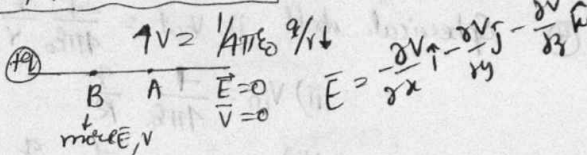 ↑V = 1/4πε₀ q/r↓
+q
B A E⃗ = 0
V = 0
↓
more E, V
E⃗ = -∂V/∂x î - ∂V/∂y ĵ - ∂V/∂z k̂